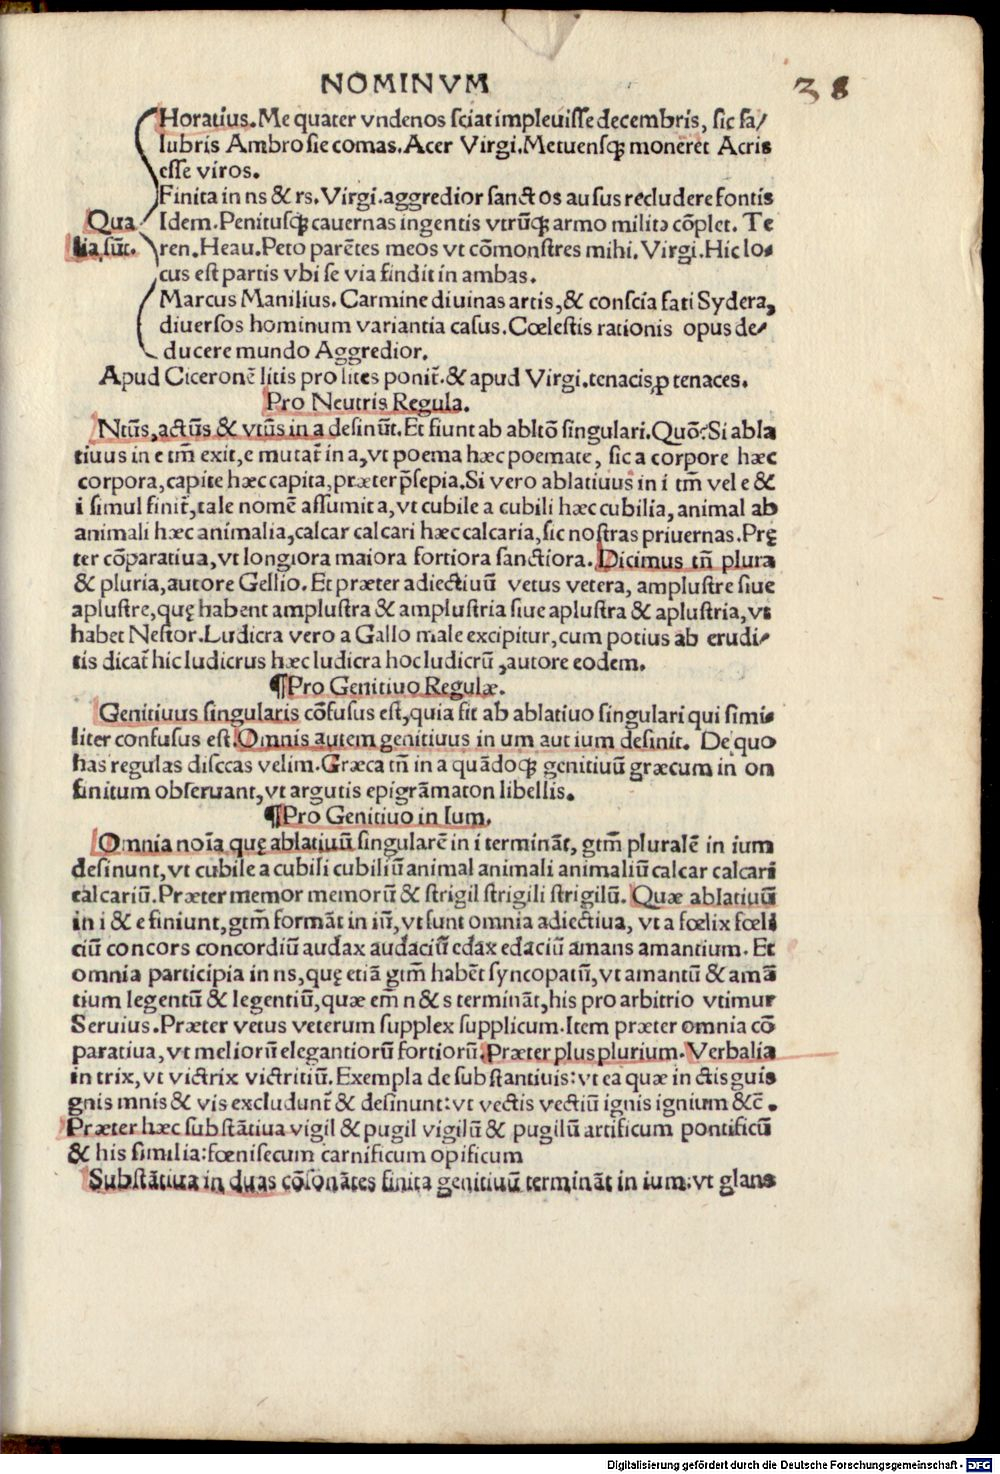 NOMINVM 38
Horatius. Me quater vndenos sciat impleuisse decembris, sic sa/
lubris Ambrosie comas. Acer Virgi. Metuensqꝫ moneret Acris
esse viros.
Finita in ns & rs. Virgi. aggredior sanctos ausus recludere fontis
Qua Idem. Penitusqꝫ cauernas ingentis vtrũqꝫ armo milite cõplet. Te
lia sũt. ren. Heau. Peto parẽtes meos vt cõmonstres mihi. Virgi. Hic lo⸗
cus est partis vbi se via findit in ambas.
Marcus Manilius. Carmine diuinas artis, & conscia fati Sydera,
diuersos hominum variantia casus. Cœlestis rationis opus de/
ducere mundo Aggredior.
Apud Ciceronẽ litis pro lites ponit̃. & apud Virgi. tenacis ꝓ tenaces.
Pro Neutris Regula.
Ntũs, actũs & vtũs in a desinũt. Et fiunt ab abltõ singulari. Quõ: Si abla
tiuus in e tm̃ exit, e mutat̃ in a, vt poema hæc poemate, sic a corpore hæc
corpora, capite hæc capita, præter p̃sepia. Si vero ablatiuus in i tm̃ vel e &
i simul finit̃, tale nomẽ assumit a, vt cubile a cubili hæc cubilia, animal ab
animali hæc animalia, calcar calcari hæc calcaria, sic nostras priuernas. Prę
ter cõparatiua, vt longiora maiora fortiora sanctiora. Dicimus tñ plura
& pluria, autore Gellio. Et præter adiectiuũ vetus vetera, amplustre siue
aplustre, quę habent amplustra & amplustria siue aplustra & aplustria, vt
habet Nestor. Ludicra vero a Gallo male excipitur, cum potius ab erudi⸗
tis dicat̃ hic ludicrus hæc ludicra hoc ludicrũ, autore eodem.
¶Pro Genitiuo Regulæ.
Genitiuus singularis cõfusus est, quia fit ab ablatiuo singulari qui simi⸗
liter confusus est. Omnis autem genitiuus in um aut ium desinit. De quo
has regulas discas velim. Græca tñ in a quãdoqꝫ genitiuũ græcum in on
finitum obseruant, vt argutis epigrãmaton libellis.
¶Pro Genitiuo in Ium.
Omnia noĩa quę ablatiuũ singularẽ in i terminãt, gtm̃ pluralẽ in ium
desinunt, vt cubile a cubili cubiliũ animal animali animaliũ calcar calcari
calcariũ. Præter memor memorũ & strigil strigili strigilũ. Quæ ablatiuũ
in i & e finiunt, gtm̃ formãt in iũ, vt sunt omnia adiectiua, vt a fœlix fœli
ciũ concors concordiũ audax audaciũ edax edaciũ amans amantium. Et
omnia participia in ns, quę etiã gtm̃ habẽt syncopatũ, vt amantũ & amã
tium legentũ & legentiũ, quæ em̃ n & s terminãt, his pro arbitrio vtimur
Seruius. Præter vetus veterum supplex supplicum. Item præter omnia cõ
paratiua, vt meliorũ elegantiorũ fortiorũ. Præter plus plurium. Verbalia
in trix, vt victrix victritiũ. Exempla de substantiuis: vt ea quæ in ctis guis
gnis mnis & vis excludunt̃ & desinunt: vt vectis vectiũ ignis ignium &c̃.
Præter hæc substãtiua vigil & pugil vigilũ & pugilũ artificum pontificũ
& his similia: fœnisecum carnificum opificum
Substãtiua in duas cõsonãtes finita genitiuũ terminãt in ium: vt glans
Digitalisierung gefördert durch die Deutsche Forschungsgemeinschaft - DFG